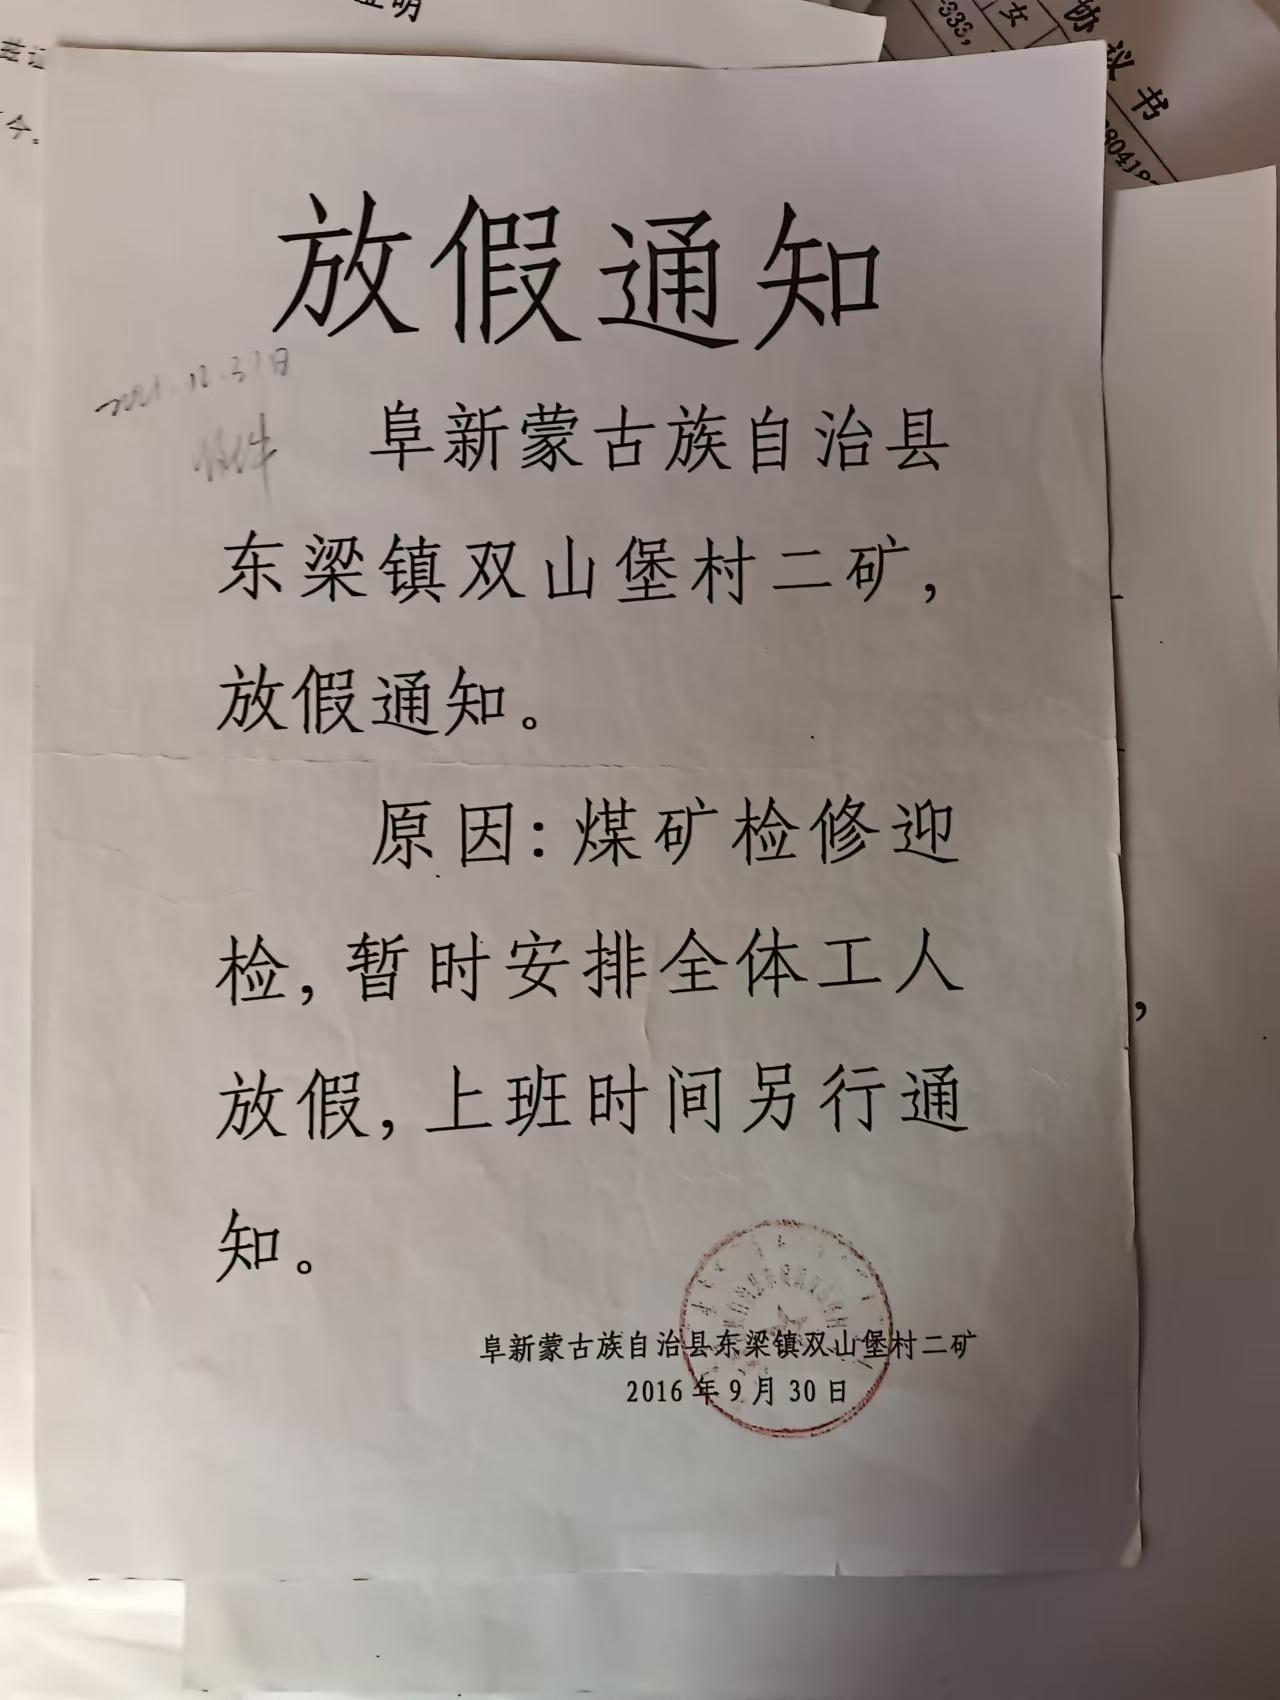 证明
兹证
今。
333,
女
协议书
放假通知
2021.12.31日
收件
阜新蒙古族自治县
东梁镇双山堡村二矿,
放假通知。
原因:煤矿检修迎
检,暂时安排全体工人
放假,上班时间另行通
知。
,
阜新蒙古族自治县东梁镇双山堡村二矿
2016年9月30日